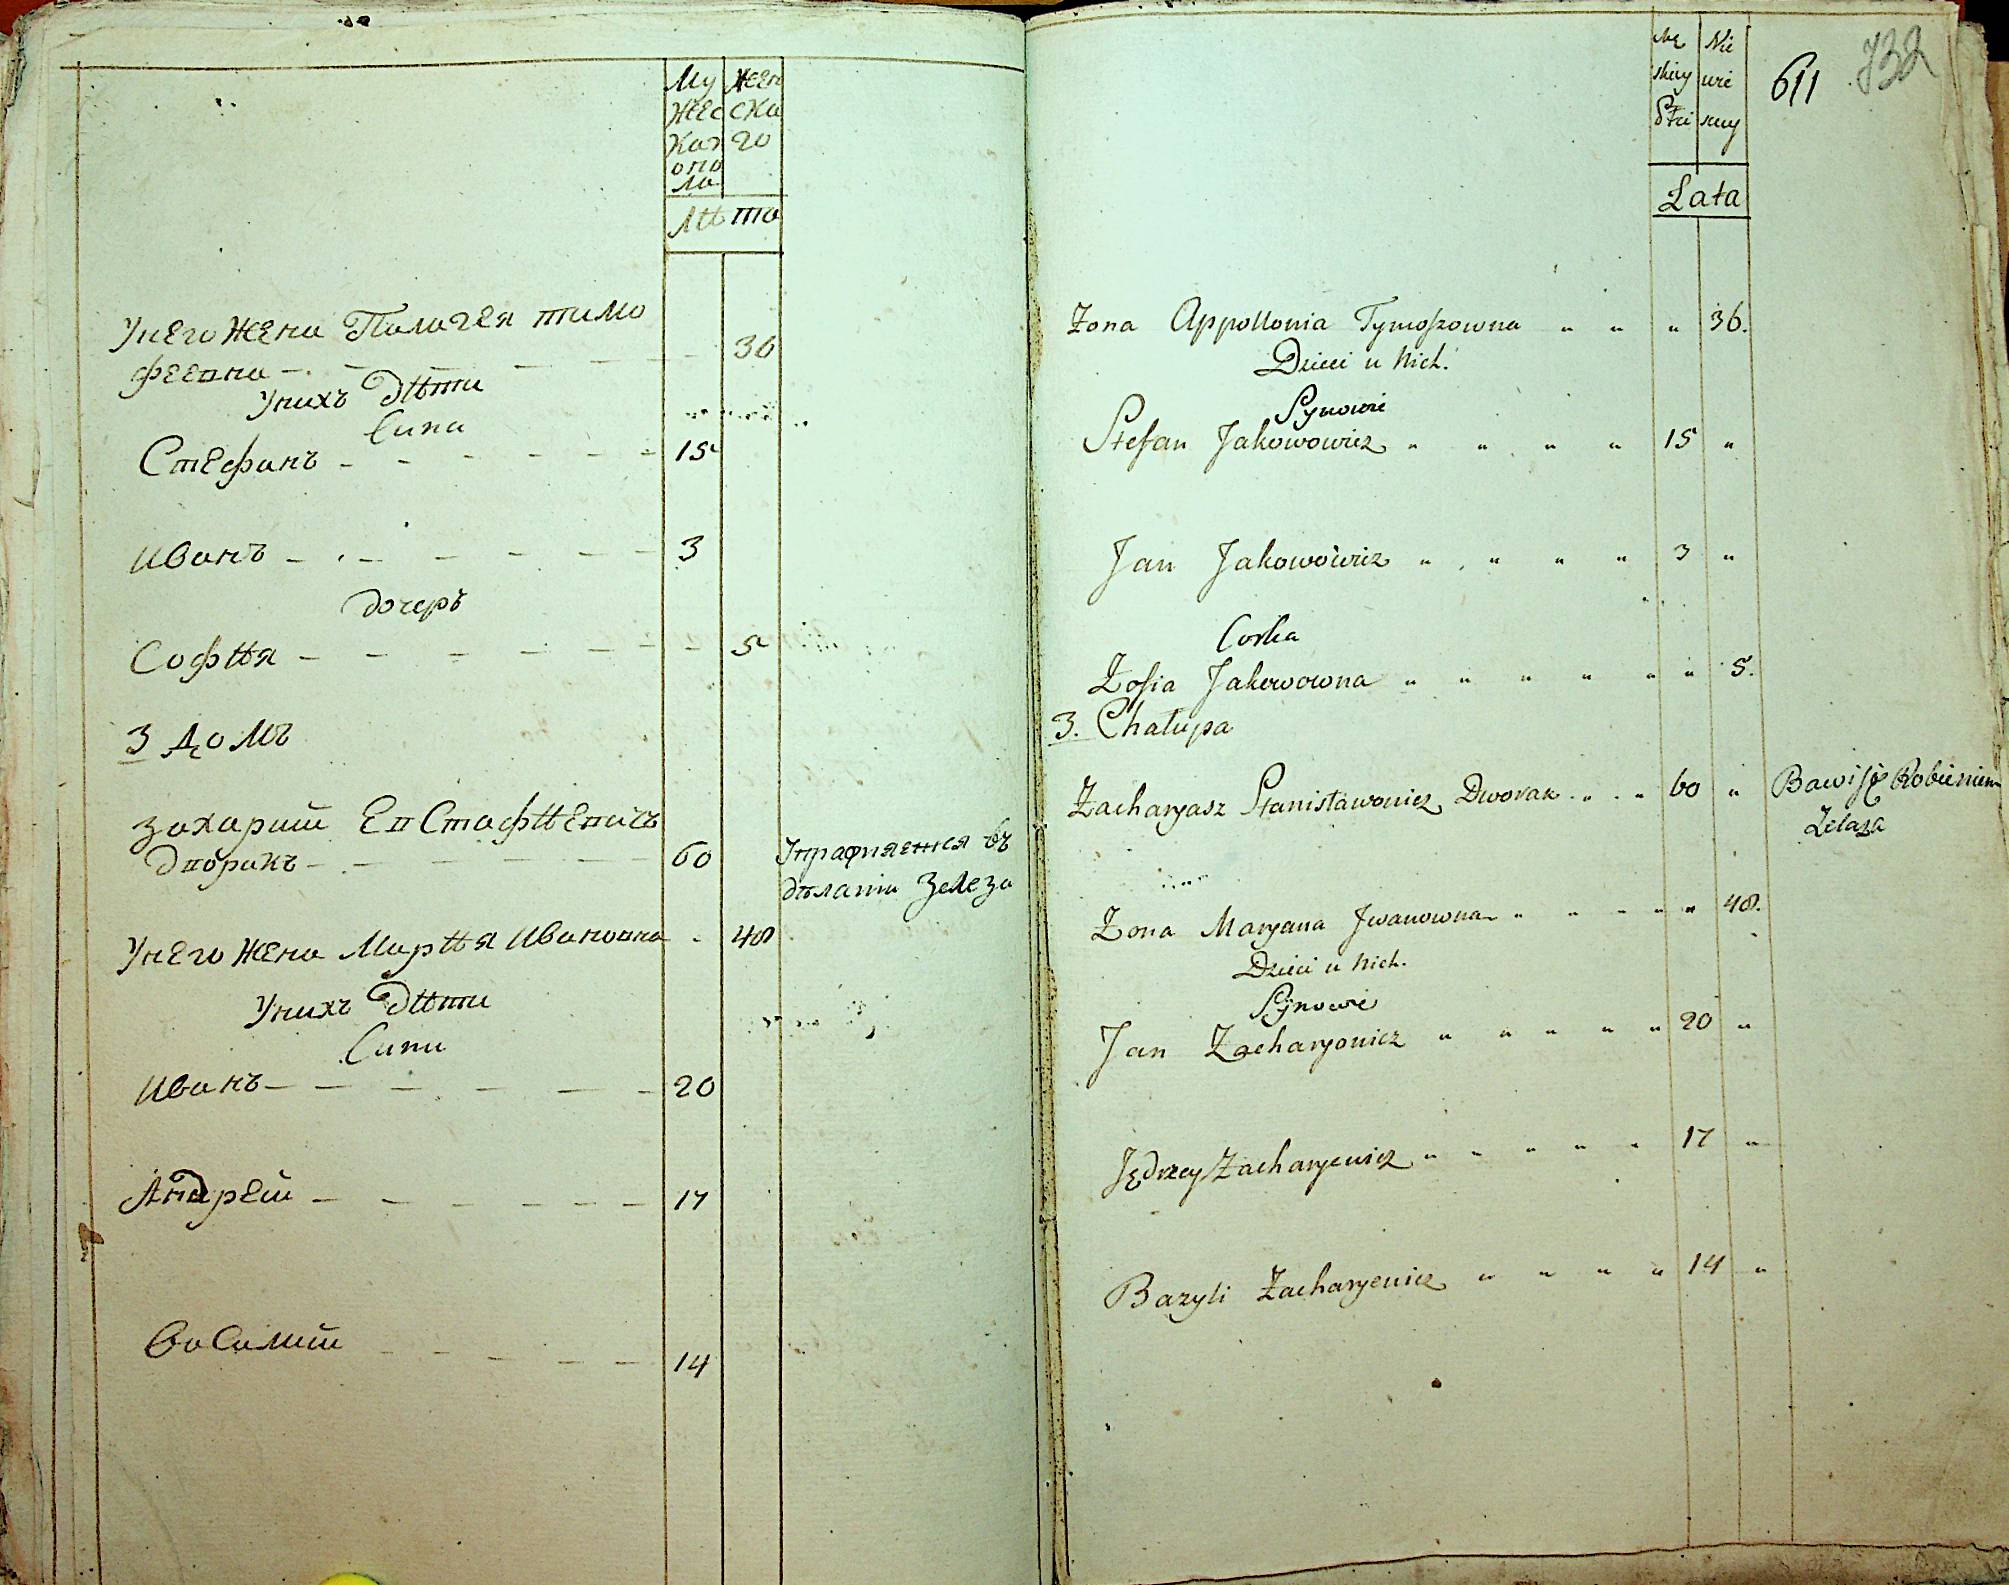 Му Жен
жес ска
каг го
опо
ла
Лѣта
У него жена Палагея тимо
феевна 36
У нихъ дѣти
Сини
Стефанъ 15
Иванъ 3
дочеръ
Софѣя 5
3 Домъ
Захарий Евстафѣевичъ
дворакъ 60 Упражняется въ
дѣланіи Железа
У него жена Марѣя Ивановна 48
У нихъ дѣти
Сини
Иванъ 20
Андрей 17
Василий 14
611 732
Mę Nie
skiey wie
Płci sciey
Lata
Żona Appollonia Tymoszowna " " " 36.
Dzieci u Nich.
Synowie
Stefan Jakowowicz " " " " 15 "
Jan Jakowowicz " " " " 3 "
Corka
Zofia Jakowowna " " " " " " 5.
3. Chałupa
Zacharyasz Stanisławowicz Dworak 60 " Bawi się Robieniem
Żelaza
Żona Maryana Jwanowna " " " " " 48.
Dzieci u Nich.
Synowie
Jan Zacharyowicz " " " " " 20 "
Jędrzey Zacharyewicz " " " " " 17 "
Bazyli Zacharyewicz " " " " 14 "